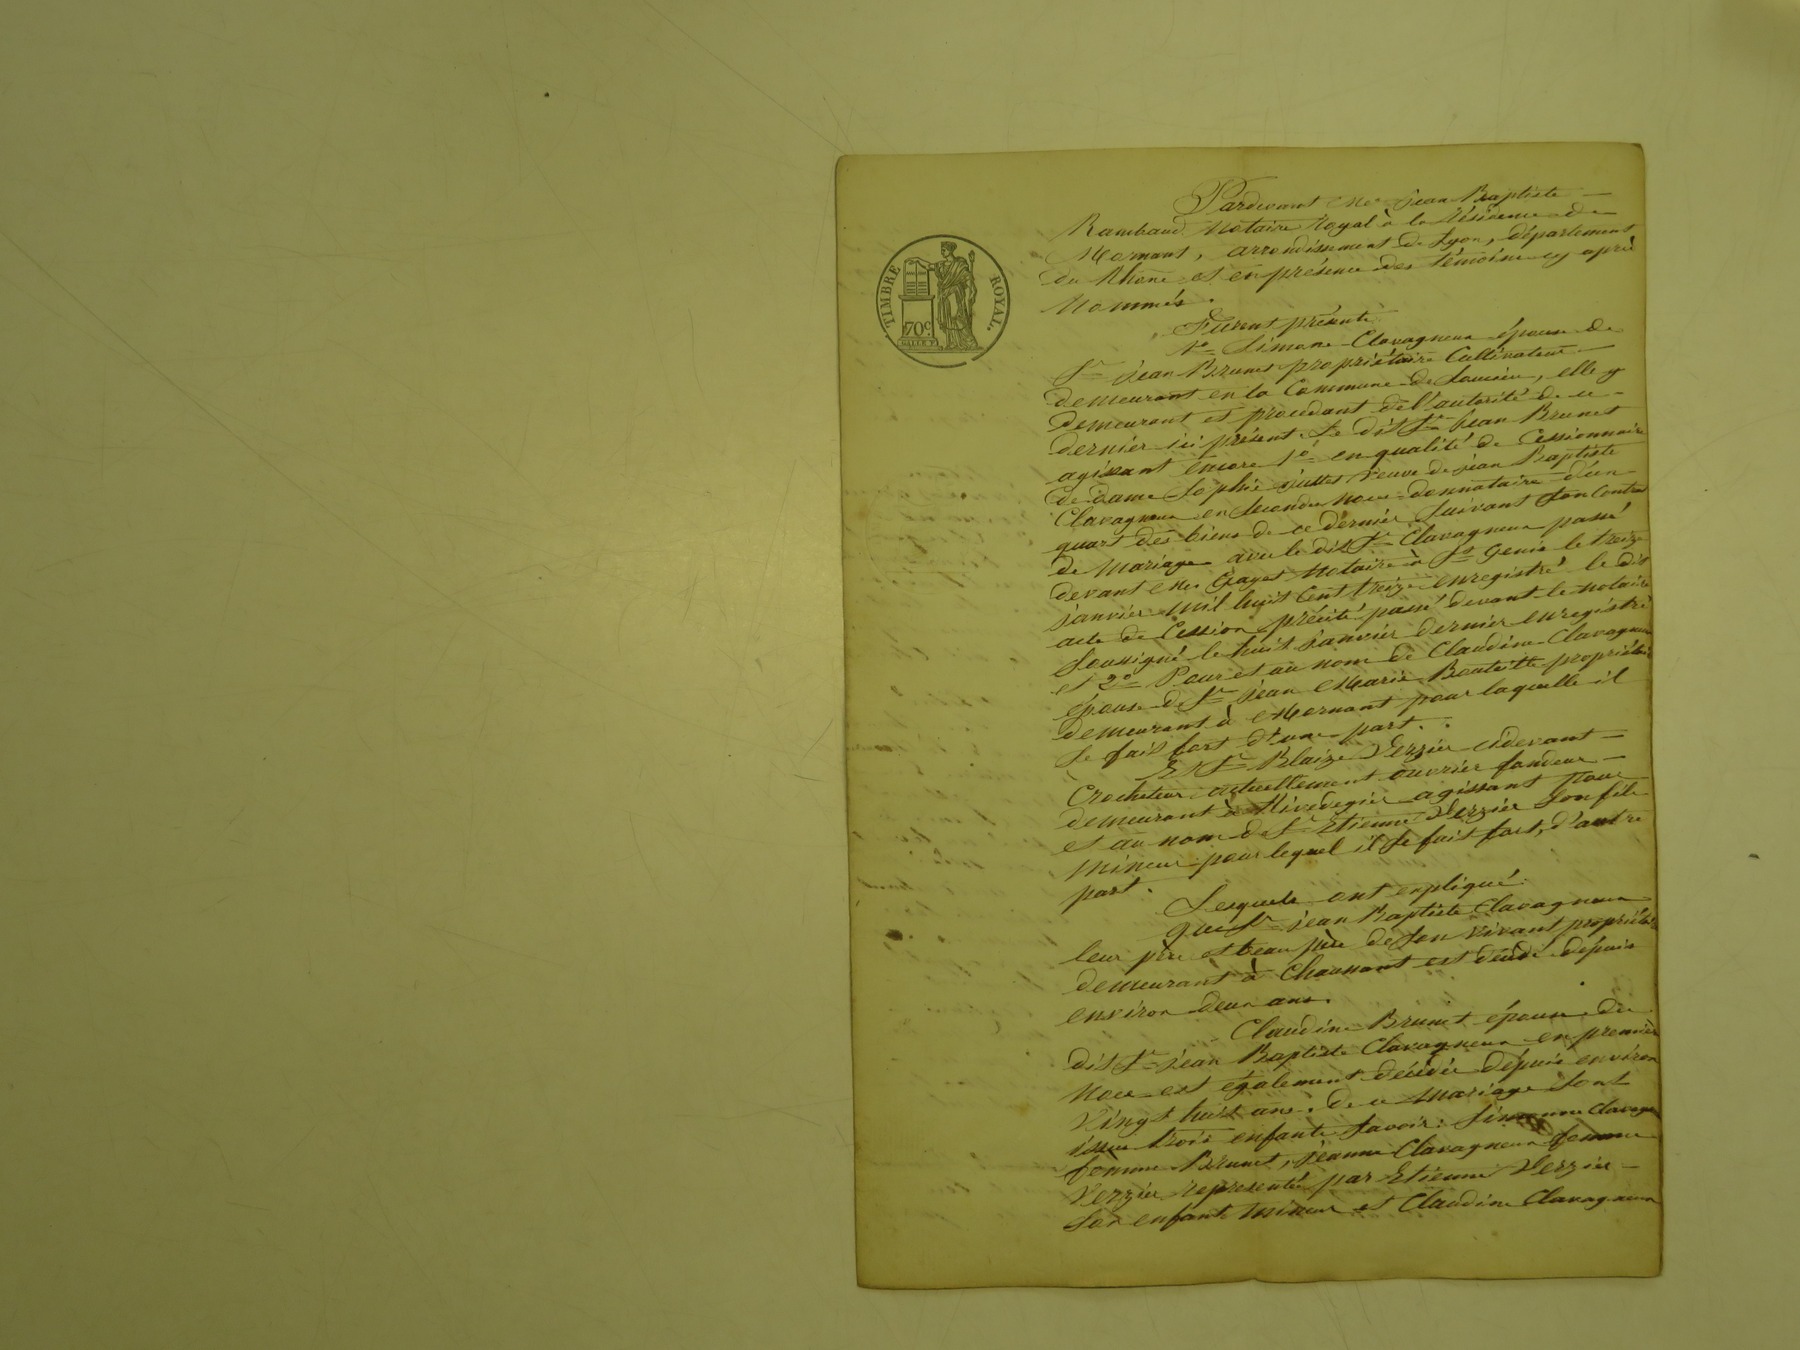 TIMBRE ROYAL.
70c
Pardevant Me Jean Baptiste
Rambaud Notaire Royal à la Résidence de
Mornant, arrondissement de Lyon, département
du Rhône et en présence des témoins cy après
Nommés.
Furent présents
1o Simone Clavagneux épouse de
Sr jean Brunet propriétaire Cultivateur
demeurant en la Commune de Soucieu, elle y
demeurant et procédant de l'autorité de ce
dernier ici présent. Le dit Sr Jean Brunet
agissant encore 1o en qualité de Cessionnaire
de dame Sophie veuve de jean Baptiste
Clavagneux en secondes noces donnataire d'un
quart des biens de ce dernier suivant son Contrat
de Mariage avec le dit Sr Clavagneux passé
devant Me Notaire à St Genis le treize
janvier mil huit Cent treize enregistré le dit
acte de Cession précité passé devant le notaire
soussigné le huit janvier dernier enregistré
et 2o Pour et au nom de Claudine Clavagneux
épouse de Sr jean Marie Bouteille propriétaire
demeurant à Mornant pour laquelle il
se fait fort d'une part.
Et Sr Blaize Verzier cidevant
Crocheteur actuellement ouvrier fondeur
demeurant à Rivedegier agissant Pour
et au nom de Sr Etienne Verzier son fils
mineur pour lequel il se fait fort, d'autre
part.
Lesquels ont expliqué:
que Sr jean Baptiste Clavagneux
leur père et beau père de son vivant propriétaire
demeurant à Chaussant est décédé depuis
environ deux ans.
Claudine Brunet épouse du
dit Sr jean Baptiste Clavagneux en première
Noce est également décédée depuis environ
Vingt huit ans. de ce Mariage sont
issus trois enfants Savoir: Simonne Clavagneux
femme Brunet, jeanne Clavagneux femme
Verzier representée par Etienne Verzier
son enfant mineur et Claudine Clavagneux